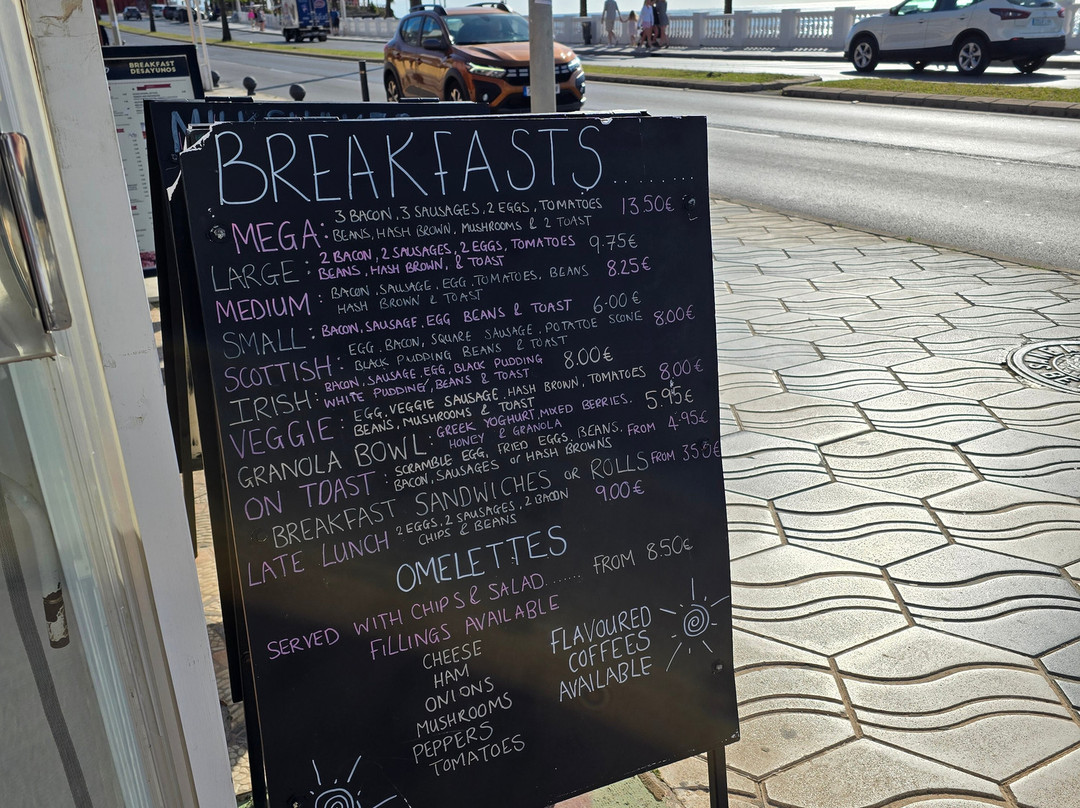 BREAKFAST
DESAYUNOS
MILKSHAKES
BREAKFASTS........
MEGA: 3 BACON, 3 SAUSAGES, 2 EGGS, TOMATOES 13.50€
BEANS, HASH BROWN, MUSHROOMS & 2 TOAST
LARGE: 2 BACON, 2 SAUSAGES, 2 EGGS, TOMATOES 9.75€
BEANS, HASH BROWN, & TOAST
MEDIUM: BACON, SAUSAGE, EGG, TOMATOES, BEANS 8.25€
HASH BROWN & TOAST
SMALL: BACON, SAUSAGE, EGG BEANS & TOAST 6.00€
SCOTTISH: EGG, BACON, SQUARE SAUSAGE, POTATOE SCONE 8.00€
BLACK PUDDING BEANS & TOAST
IRISH: BACON, SAUSAGE, EGG, BLACK PUDDING 8.00€
WHITE PUDDING, BEANS & TOAST
VEGGIE: EGG, VEGGIE SAUSAGE, HASH BROWN, TOMATOES 8.00€
BEANS, MUSHROOMS & TOAST
GRANOLA BOWL: GREEK YOGHURT, MIXED BERRIES. 5.95€
HONEY & GRANOLA
ON TOAST: SCRAMBLE EGG, FRIED EGGS, BEANS, FROM 4.95€
BACON, SAUSAGES or HASH BROWNS
BREAKFAST SANDWICHES OR ROLLS FROM 3.50€
LATE LUNCH 2 EGGS, 2 SAUSAGES, 2 BACON 9.00€
CHIPS & BEANS
OMELETTES
SERVED WITH CHIPS & SALAD....... FROM 8.50€
FILLINGS AVAILABLE
CHEESE
HAM
ONIONS
MUSHROOMS
PEPPERS
TOMATOES
FLAVOURED
COFFEES
AVAILABLE